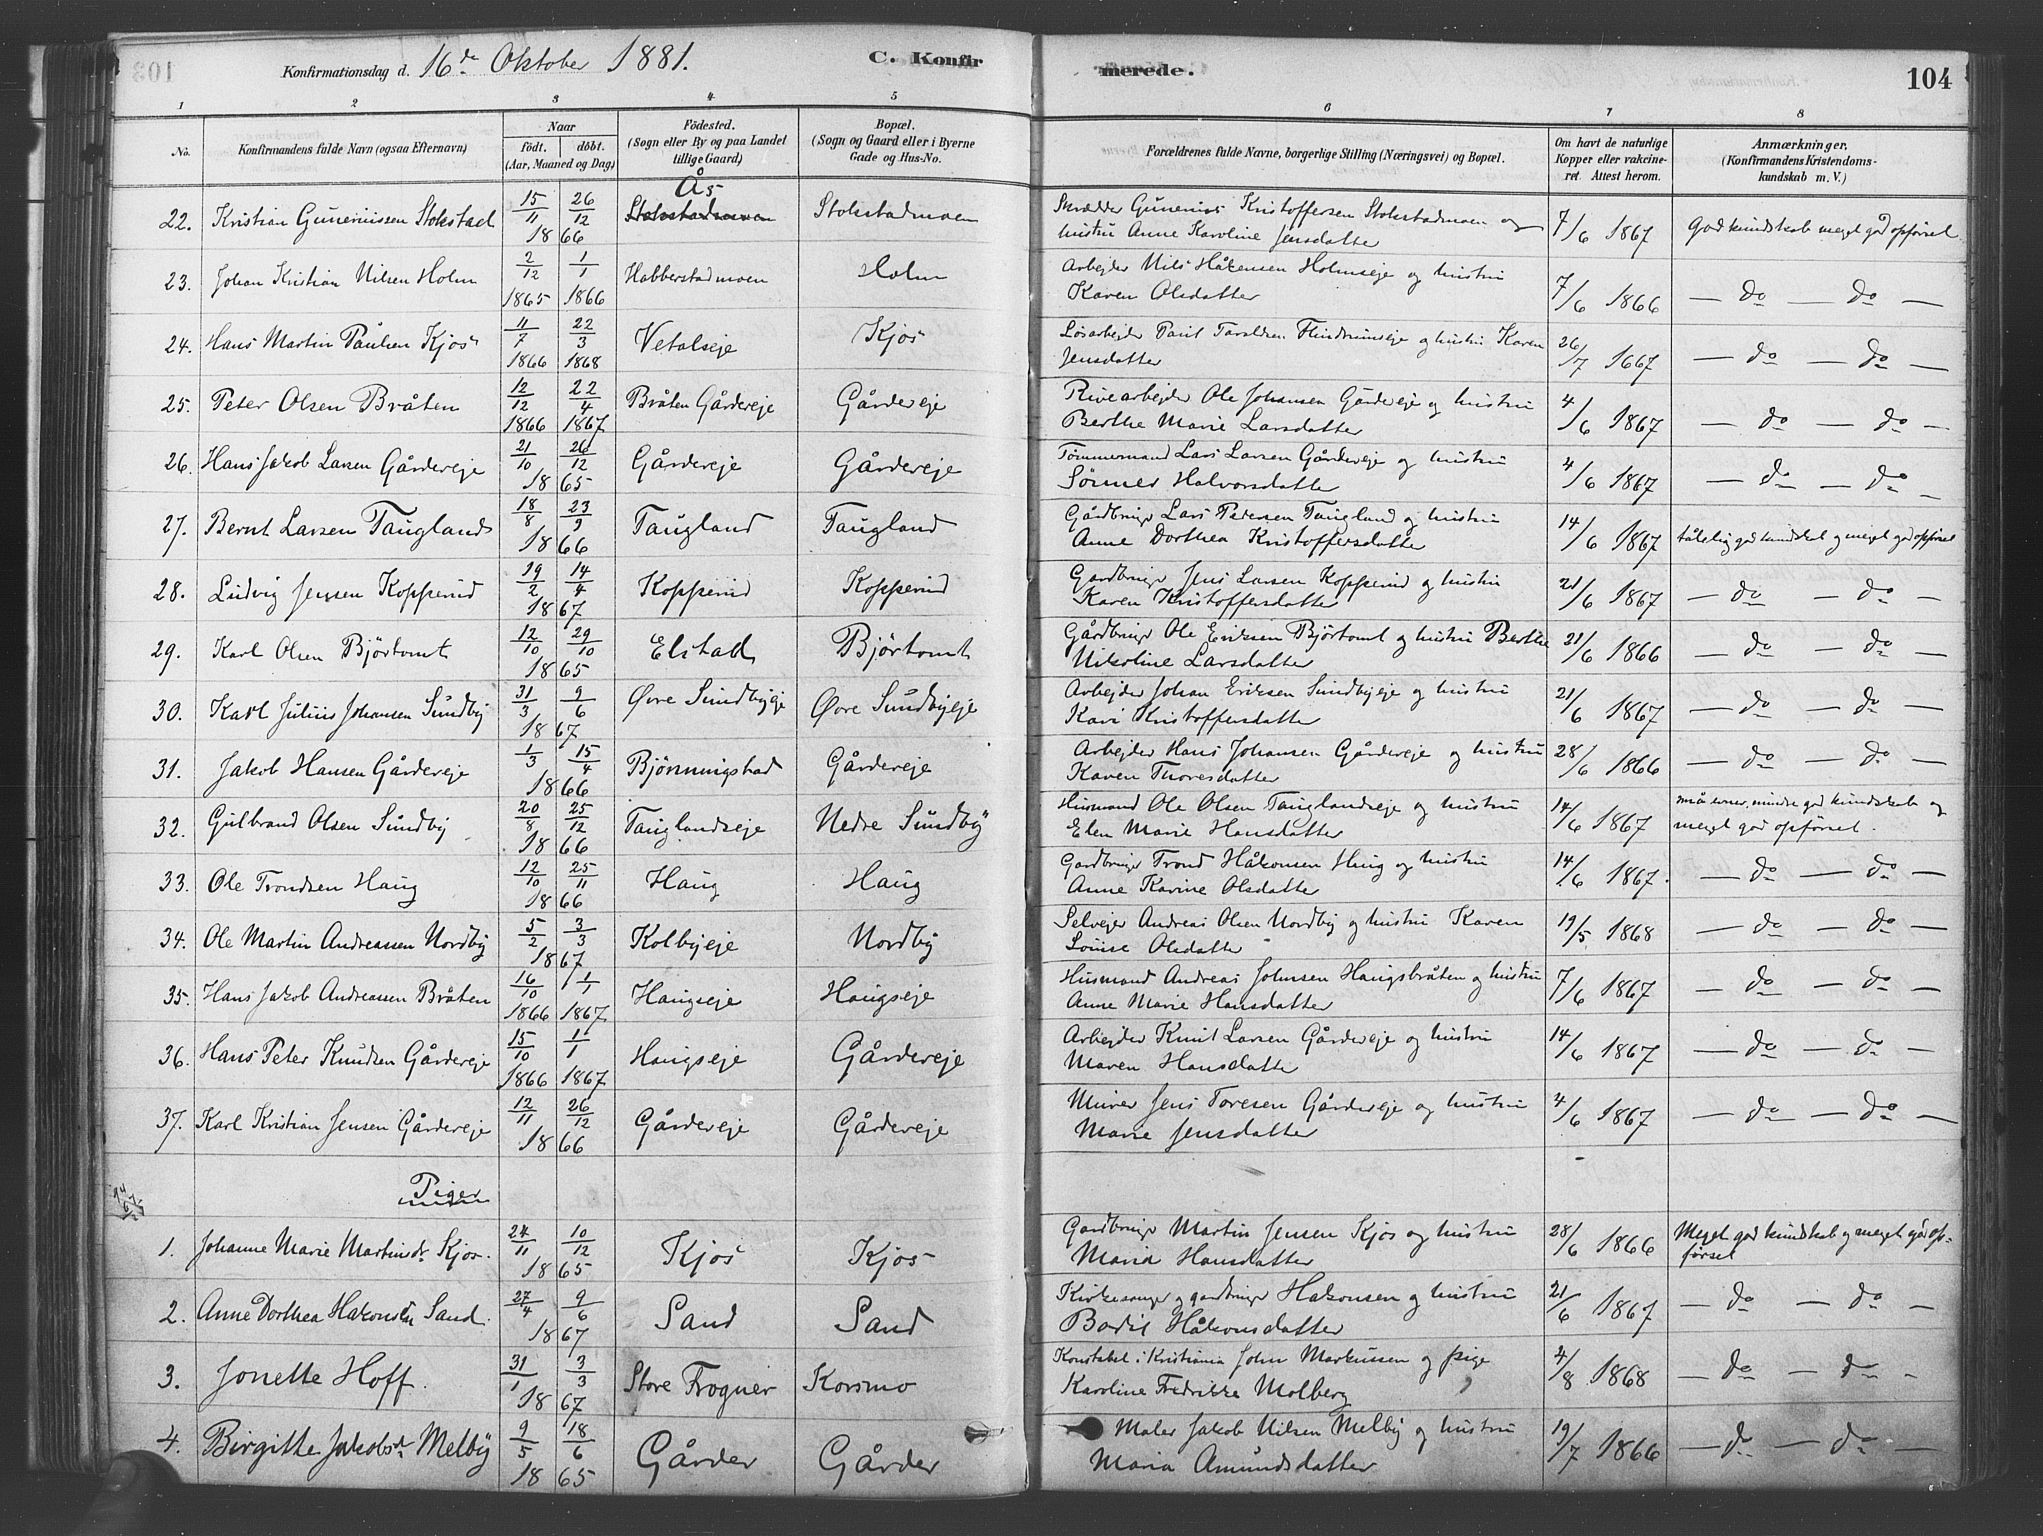 Konfirmationsdag d. 16de Oktober 1881. C. Konfirmerede. 104
1 2 3 4 5 6 7 8
No. Konfirmandens fulde Navn (ogsaa Efternavn) Naar födt. döbt. (Aar, Maaned og Dag) Födested. (Sogn eller By og paa Landet tillige Gaard) Bopæl. (Sogn og Gaard eller i Byerne Gade og Hus-No. Forældrenes fulde Navne, borgerlige Stilling (Næringsvei) og Bopæl. Om havt de naturlige Kopper eller vakcineret. Attest herom. Anmærkninger. (Konfirmandens Kristendomskundskab m. V.)
22. Kristian Guneriussen Stokstad 15/11 26/12 1866 Ås Stokstadmoen Stokstadmoen Skrædder Gunerius Kristoffersen Stokstadmoen og hustru Anne Karoline Jensdatter 7/6 1867 God kundskab meget god opførsel
23. Johan Kristian Nilsen Holm 2/12 1865 1/1 1866 Habberstadmoen Holm Arbejder Nils Håkensen Holmseje og hustru Karen Olsdatter 7/6 1866 — do — do —
24. Hans Martin Paulsen Kjos 11/7 1866 22/3 1868 Vetalseje Kjos Løsarbejder Paul Taraldsen Flindrumseje og hustru Karen Jensdatter 26/7 1667 — do — do —
25. Peter Olsen Bråten 12/12 1866 22/4 1867 Bråten Gårdereje Gårdereje Rivearbejder Ole Johansen Gårdereje og hustru Berthe Marie Larsdatter 4/6 1867 — do — do —
26. Hans Jakob Larsen Gårdereje 21/10 26/12 1865 Gårdereje Gårdereje Tømmermand Lars Larsen Gårdereje og hustru Sønner Halvorsdatter 4/6 1867 — do — do —
27. Bernt Larsen Taugland 18/8 23/9 1866 Taugland Taugland Gårdbruger Lars Pedersen Taugland og hustru Anne Dorthea Kristoffersdatter 14/6 1867 tålelig god kundskab og meget god opførsel
28. Ludvig Jensen Kopperud 19/2 14/4 1867 Kopperud Kopperud Gardbruger Jens Larsen Kopperud og hustru Karen Kristoffersdatter 21/6 1867 — do — do —
29. Karl Olsen Bjørtomt 12/10 29/10 1865 Elstad Bjørtomt Gårdbruger Ole Eriksen Bjørtomt og hustru Berthe Nikoline Larsdatter 21/6 1866 — do — do —
30. Karl Julius Johansen Sundby 31/3 9/6 1867 Øvre Sundbyeje Øvre Sundbyeje Arbejder Johan Eriksen Sundbyeje og hustru Kari Kristoffersdatter 21/6 1867 — do — do —
31. Jakob Hansen Gårdereje 1/3 15/4 1866 Bjønningstad Gårdereje Arbejder Hans Johansen Gårdereje og hustru Karen Thoresdatter 28/6 1866 — do — do —
32. Gulbrand Olsen Sundby 20/8 25/12 1866 Tauglandseje Nedre Sundby Husmand Ole Olsen Tauglandseje og hustru Elen Marie Hansdatter 14/6 1867 små evner, mindre god kundskab og meget god opførsel.
33. Ole Trondsen Haug 12/10 25/11 1866 Haug Haug Gardbruger Trond Håkonsen Haug og hustru Anne Karine Olsdatter 14/6 1867. — do — do —
34. Ole Martin Andreassen Nordby 5/2 3/3 1867 Kolbyeje Nordby Selvejer Andreas Olsen Nordby og hustru Karen Louise Olsdatter 19/5 1868 — do — do —
35. Hans Jakob Andreassen Bråten 16/10 1866 1/1 1867 Haugseje Haugseje Husmand Andreas Johnsen Haugsbråten og hustru Anne Marie Hansdatter 7/6 1867 — do — do —
36. Hans Peter Knudsen Gårdereje 15/10 1866 1/1 1867 Haugseje Gårdereje Arbejder Knut Larsen Gårdereje og hustru Maren Hansdatter 14/6 1867 — do — do —
37. Karl Kristian Jensen Gårdereje 12/11 26/12 1866 Gårdereje Gårdereje Murer Jens Toresen Gårdereje og hustru Marie Jensdatter 4/6 1867 — do — do —
Piger
1. Johanne Marie Martinsdr. Kjos. 24/11 10/12 1865 Kjos Kjos Gardbruger Martin Jensen Kjos og hustru Maria Hansdatter 28/6 1866 Meget god kundskab og meget god opførsel
2. Anne Dorthea Hakonsdr Sand. 27/4 9/6 1867 Sand Sand Kirkesanger og gardbruger Hakonsen og hustru Bodil Håkonsdatter 21/6 1867 — do — do —
3. Jonette Hoff. 31/1 3/3 1867 Store Frogner Korsmo Konstabel i Kristiania John Markussen og pige Karoline Fredrikke Molberg 4/8 1868 — do — do —
4. Birgitte Jakobsdr Melby 9/5 18/6 1865 Gårder Gårder Maler Jakob Nilsen Melby og hustru Maria Amundsdatter 19/7 1866 — do — do —